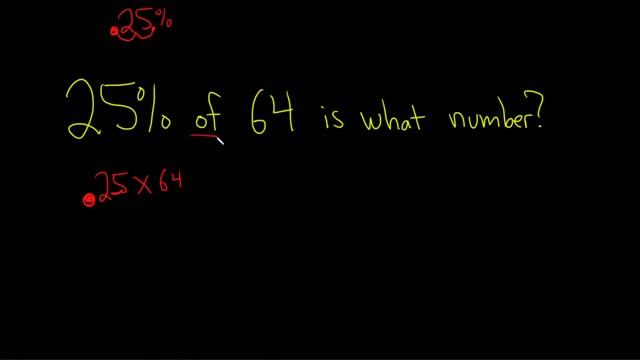 .25%
25% of 64 is what number?
.25 x 64